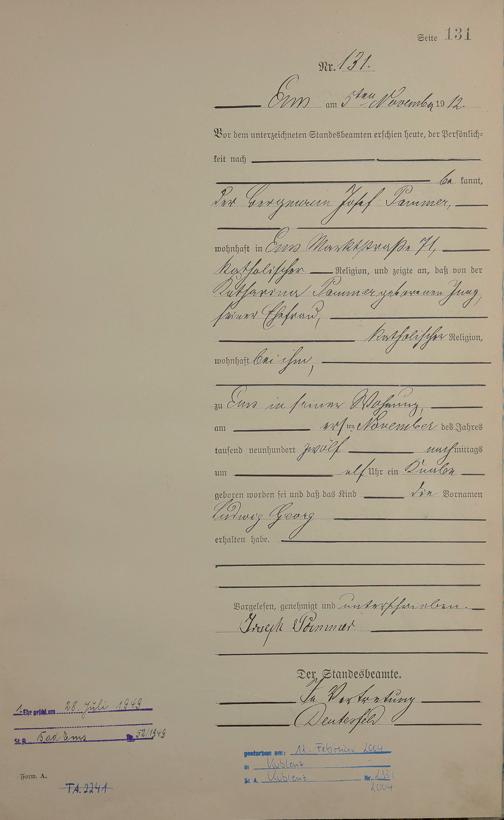 Seite 131
Nr. 131.
Ems am 5ten November 1912.
Vor dem unterzeichneten Standesbeamten erschien heute, der Persönlich-
keit nach
be kannt,
der Bergmann Josef Pammer,
wohnhaft in Ems Marktstraße 71,
katholischer Religion, und zeigte an, daß von der
Katharina Pammer geborenen Jung,
seiner Ehefrau,
katholischer Religion,
wohnhaft bei ihm,
zu Ems in seiner Wohnung,
am ersten November des Jahres
tausend neunhundert zwölf nachmittags
um elf Uhr ein Knabe
geboren worden sei und daß das Kind die Vornamen
Ludwig Georg
erhalten habe.
Vorgelesen, genehmigt und unterschrieben.
Joseph Pammer
Der Standesbeamte.
In Vertretung
1. Ehe geschl. am 28. Juli 1949
St. A. Bad Ems Nr. 52/1949
gestorben am: 12. Februar 2004
in Koblenz
St. A. Koblenz Nr.
2004
Form. A.
TA. 2241